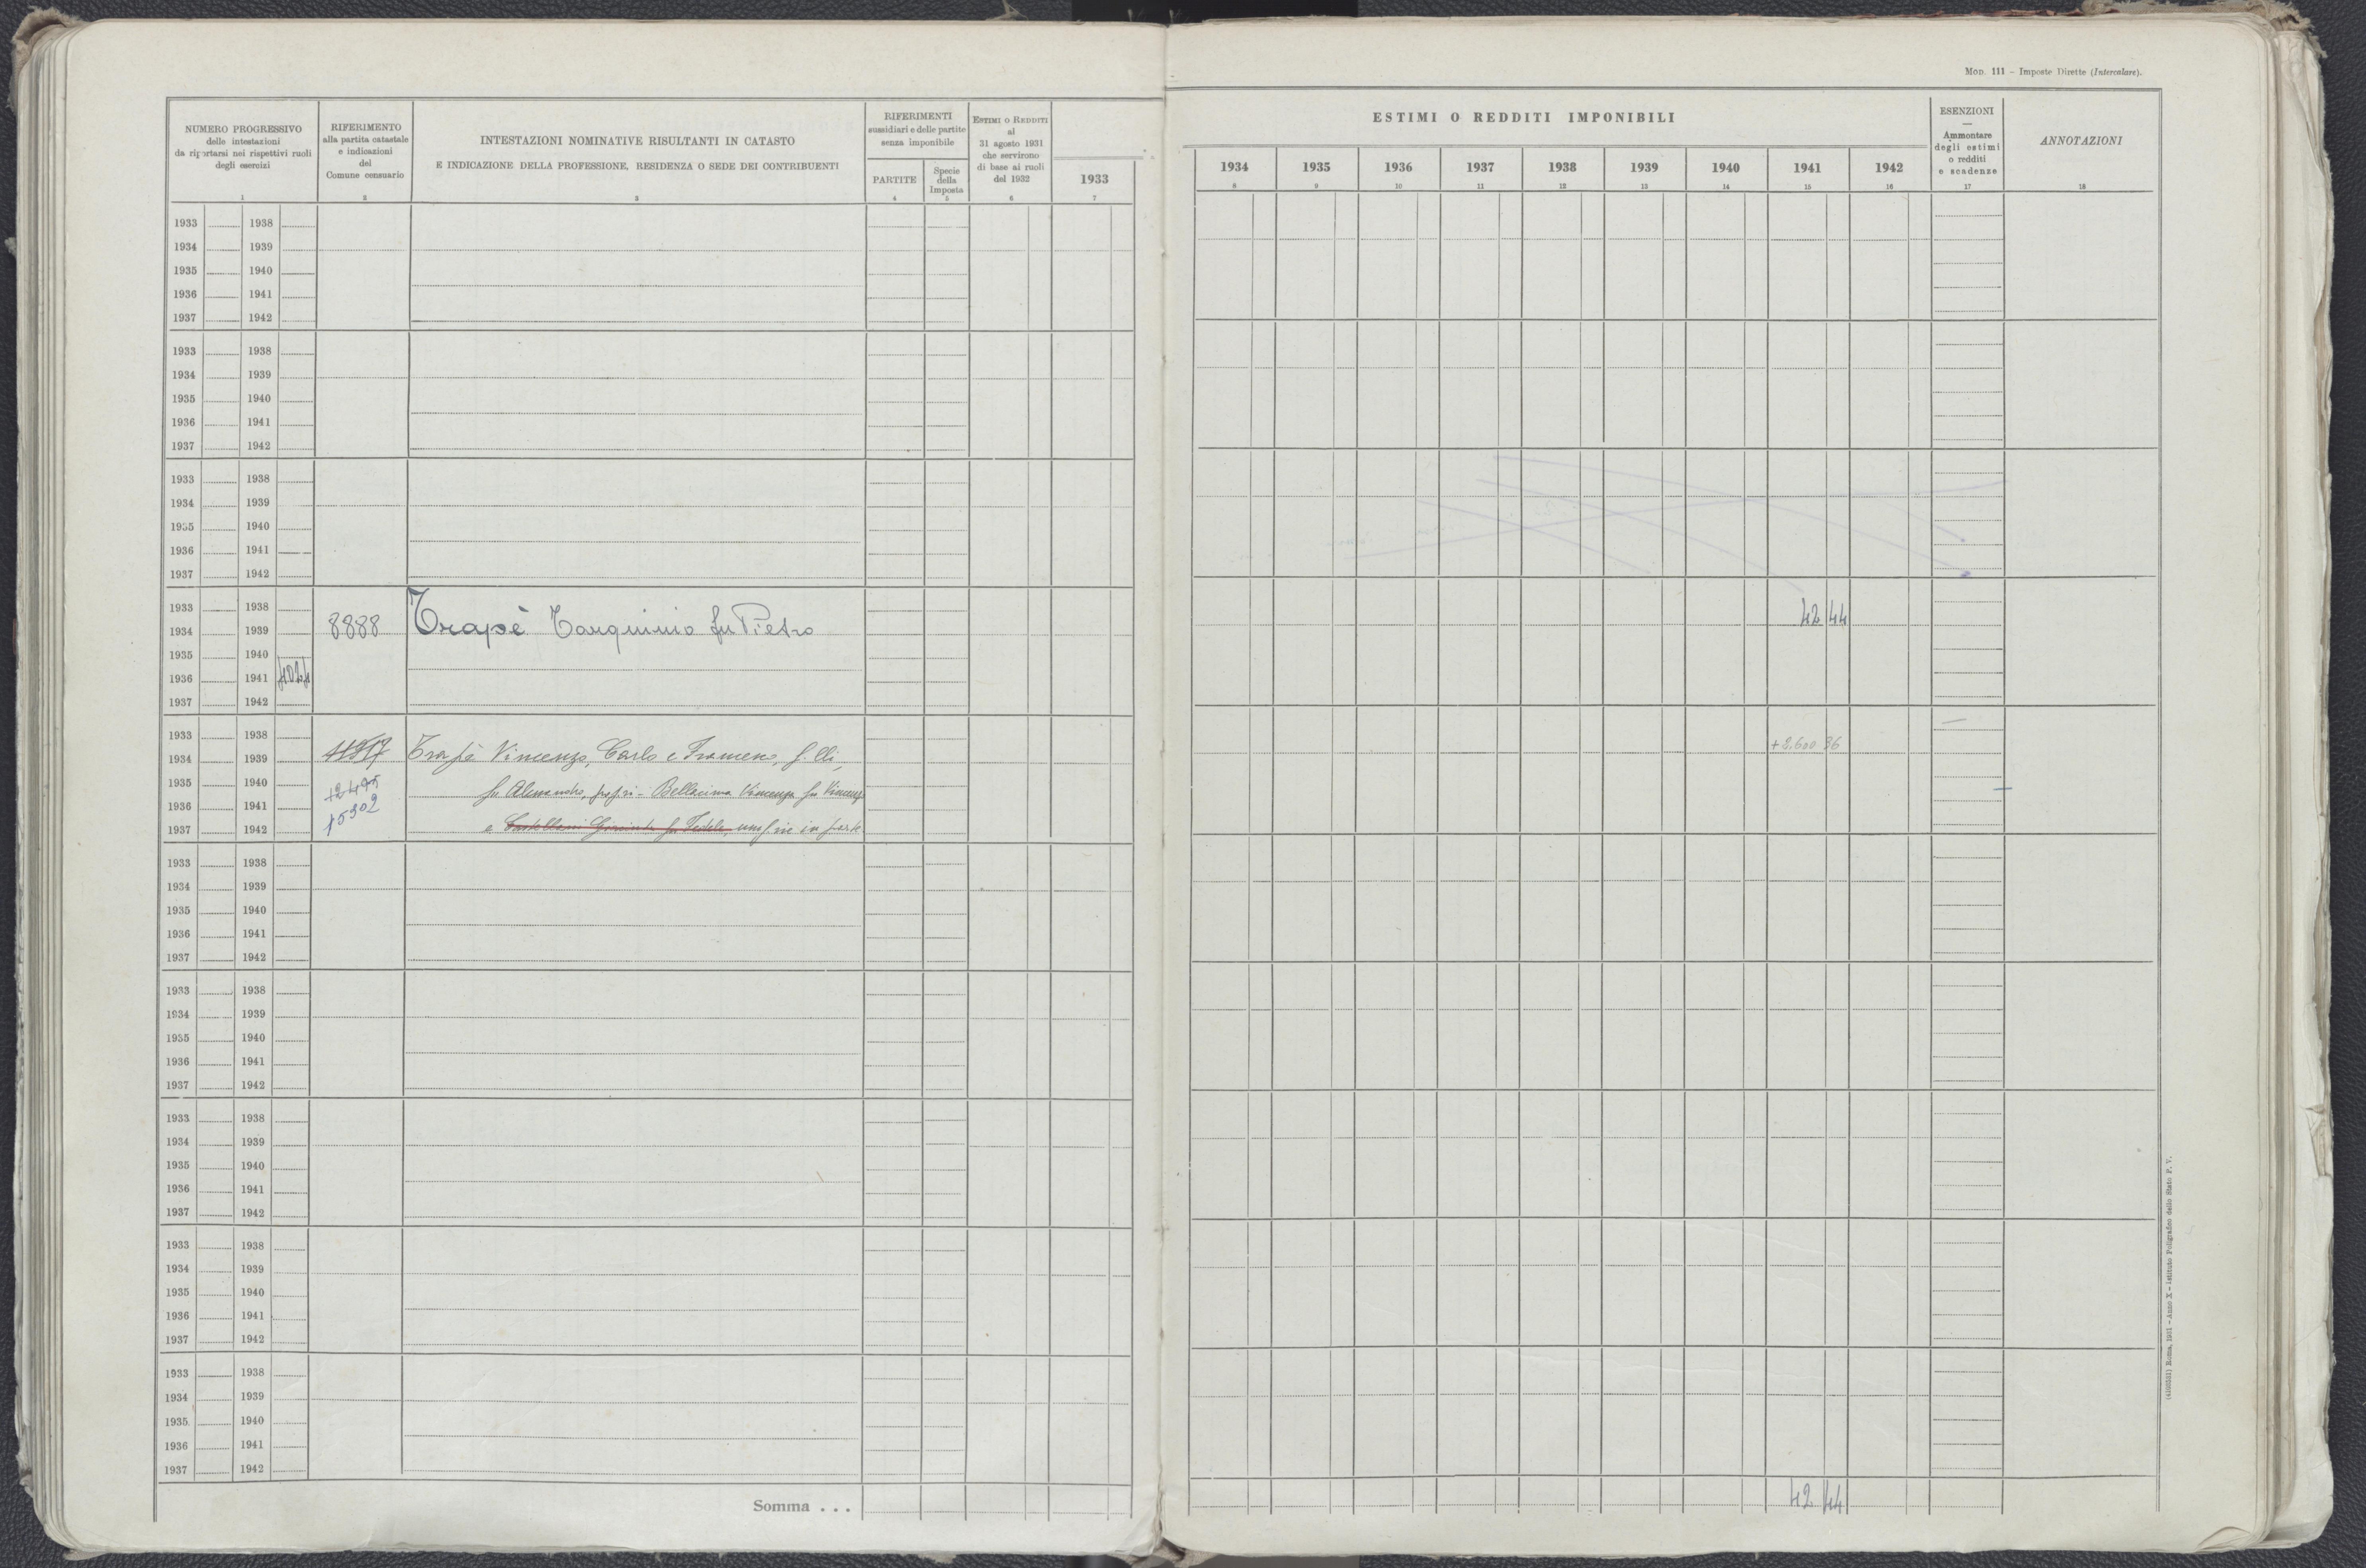 MOD. 111 – Imposte Dirette (Intercalare).
NUMERO PROGRESSIVO
delle intestazioni
da riportarsi nei rispettivi ruoli
degli esercizi
1
RIFERIMENTO
alla partita catastale
e indicazioni
del
Comune censuario
2
INTESTAZIONI NOMINATIVE RISULTANTI IN CATASTO
E INDICAZIONE DELLA PROFESSIONE, RESIDENZA O SEDE DEI CONTRIBUENTI
3
RIFERIMENTI
sussidiari e delle partite
senza imponibile
PARTITE
4
Specie
della
Imposta
5
ESTIMI O REDDITI
al
31 agosto 1931
che servirono
di base ai ruoli
del 1932
6
1933
7
ESTIMI O REDDITI IMPONIBILI
1934 1935 1936 1937 1938 1939 1940 1941 1942
8 9 10 11 12 13 14 15 16
ESENZIONI
—
Ammontare
degli estimi
o redditi
e scadenze
17
ANNOTAZIONI
18
1933 1938
1934 1939
1935 1940
1936 1941
1937 1942
1933 1938
1934 1939
1935 1940
1936 1941
1937 1942
1933 1938
1934 1939
1935 1940
1936 1941
1937 1942
1933 1938
1934 1939 8888 Trapè Tarquinio fu Pietro 42 44
1935 1940
1936 1941 4024
1937 1942
1933 1938
1934 1939 Trapè Vincenzo, Carlo e f.lli
1935 1940 12495 fu propri - Bellacima Vincenza fu
1936 1941 15302
1937 1942 e fu Fedele, in parte
1933 1938
1934 1939
1935 1940
1936 1941
1937 1942
1933 1938
1934 1939
1935 1940
1936 1941
1937 1942
1933 1938
1934 1939
1935 1940
1936 1941
1937 1942
1933 1938
1934 1939
1935 1940
1936 1941
1937 1942
1933 1938
1934 1939
1935 1940
1936 1941
1937 1942
Somma . . . 42 44